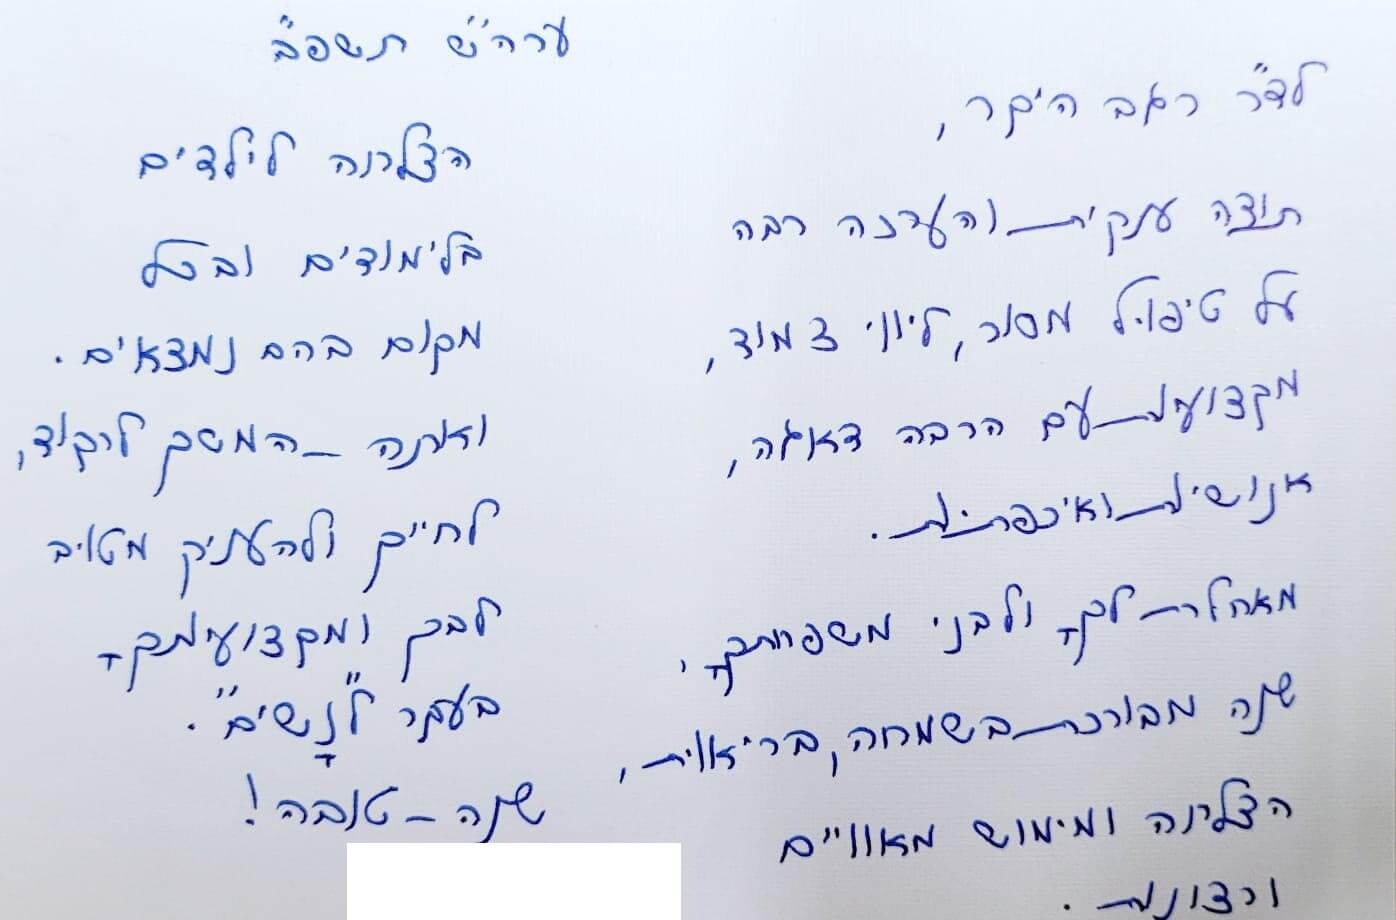 ערה"ש תשפ"ב
לד"ר רגב היקר,
תודה ענקית והערכה רבה
על טיפול מסור, ליווי צמוד,
מקצועיות עם הרבה דאגה,
אנושיות ואיכפתיות.
מאחלת לך ולבני משפחתך,
שנה מבורכת בשמחה, בריאות,
הצלחה ומימוש מאוויים
ורצונות.
הצלחה לילדים
בלימודים ובכל
מקום בהם נמצאים.
ואתה – המשך לרקוד,
לחיים ולהעניק מטוב
לבך ומקצועיותך
בעיקר ל"נָשים".
שנה – טובה!